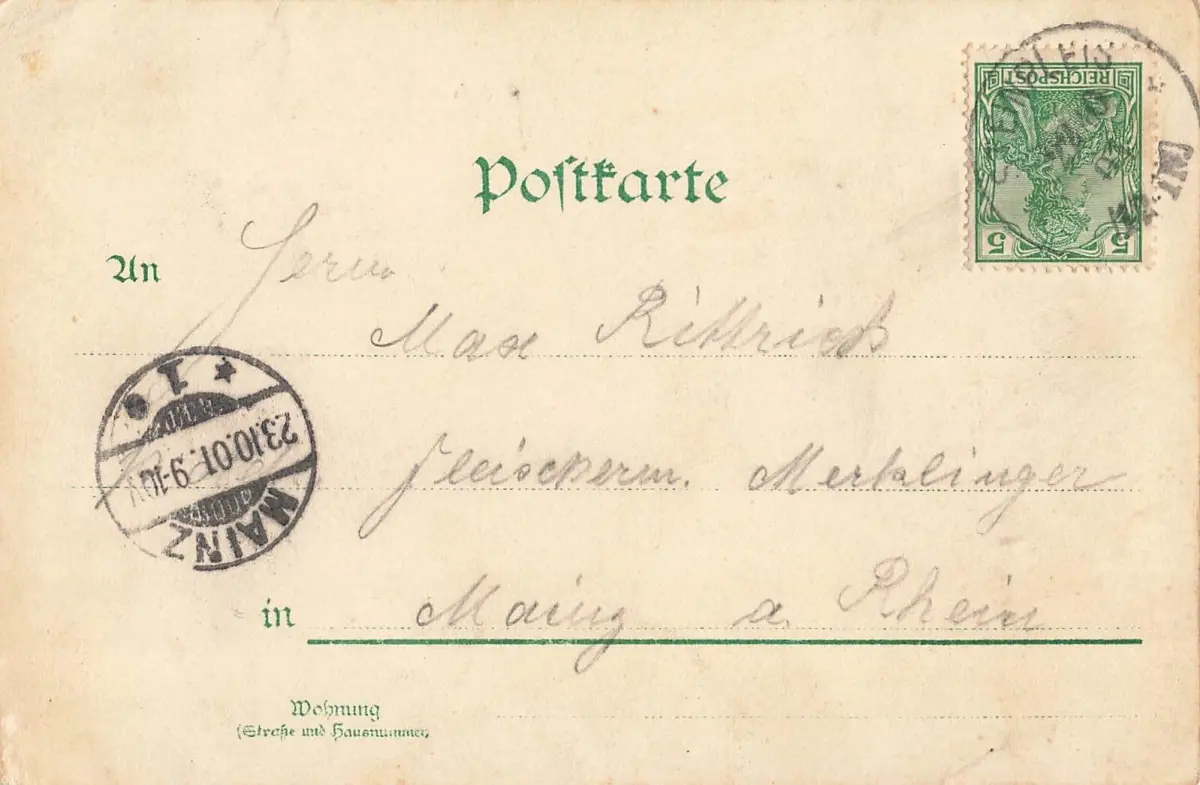 REICHSPOST
5 5
Postkarte
An Herrn
Max Rittrich
Fleischerm. Merklinger
in Mainz a. Rhein
Wohnung
(Straße und Hausnummer)
* 1
23.10.01. 9-10V
MAINZ